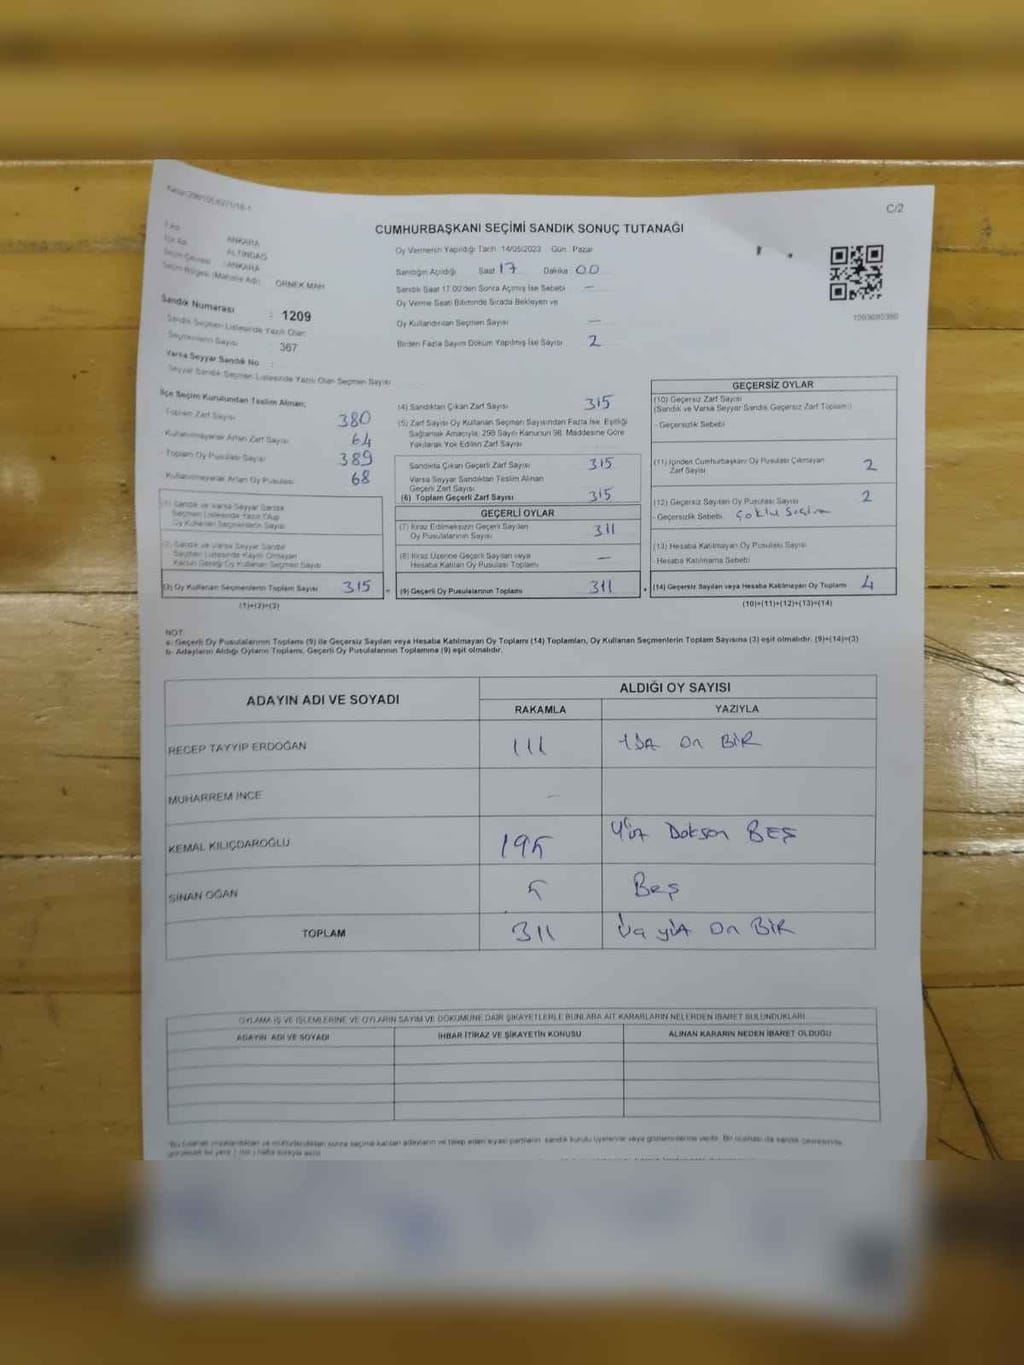 C/2
CUMHURBAŞKANI SEÇİMİ SANDIK SONUÇ TUTANAĞI
ANKARA
ALTINDAĞ
ANKARA
ÖRNEK MAH
Oy Vermenin Yapıldığı Tarih 14/05/2023 Gün Pazar
Sandığın Açıldığı Saat 17 Dakika 00
Sandık Saat 17.00'den Sonra Açılmış İse Sebebi —
Oy Verme Saati Bitiminde Sırada Bekleyen ve
Oy Kullandırılan Seçmen Sayısı —
Birden Fazla Sayım Döküm Yapılmış İse Sayısı 2
Sandık Numarası : 1209
Sandık Seçmen Listesinde Yazılı Olan
Seçmenlerin Sayısı : 367
Varsa Seyyar Sandık No :
Seyyar Sandık Seçmen Listesinde Yazılı Olan Seçmen Sayısı
İlçe Seçim Kurulundan Teslim Alınan;
Toplam Zarf Sayısı 380
Kullanılmayarak Artan Zarf Sayısı 64
Toplam Oy Pusulası Sayısı 389
Kullanılmayarak Artan Oy Pusulası 68
(1) Sandık ve Varsa Seyyar Sandık
Seçmen Listesinde Yazılı Olup
Oy Kullanan Seçmenlerin Sayısı
(2) Sandık ve Varsa Seyyar Sandık
Seçmen Listesinde Kayıtlı Olmayan
Kanun Gereği Oy Kullanan Seçmen Sayısı
(3) Oy Kullanan Seçmenlerin Toplam Sayısı 315
(1)+(2)=(3)
(4) Sandıktan Çıkan Zarf Sayısı 315
(5) Zarf Sayısı Oy Kullanan Seçmen Sayısından Fazla İse, Eşitliği
Sağlamak Amacıyla, 298 Sayılı Kanunun 98. Maddesine Göre
Yakılarak Yok Edilen Zarf Sayısı
Sandıkta Çıkan Geçerli Zarf Sayısı 315
Varsa Seyyar Sandıktan Teslim Alınan
Geçerli Zarf Sayısı
(6) Toplam Geçerli Zarf Sayısı 315
GEÇERLİ OYLAR
(7) İtiraz Edilmeksizin Geçerli Sayılan
Oy Pusulalarının Sayısı 311
(8) İtiraz Üzerine Geçerli Sayılan veya
Hesaba Katılan Oy Pusulası Toplamı —
(9) Geçerli Oy Pusulalarının Toplamı 311
GEÇERSİZ OYLAR
(10) Geçersiz Zarf Sayısı
(Sandık ve Varsa Seyyar Sandık Geçersiz Zarf Toplamı)
- Geçersizlik Sebebi
(11) İçinden Cumhurbaşkanı Oy Pusulası Çıkmayan
Zarf Sayısı 2
(12) Geçersiz Sayılan Oy Pusulası Sayısı 2
- Geçersizlik Sebebi
(13) Hesaba Katılmayan Oy Pusulası Sayısı
- Hesaba Katılmama Sebebi
(14) Geçersiz Sayılan veya Hesaba Katılmayan Oy Toplamı 4
(10)+(11)+(12)+(13)=(14)
NOT:
a- Geçerli Oy Pusulalarının Toplamı (9) ile Geçersiz Sayılan veya Hesaba Katılmayan Oy Toplamı (14) Toplamları, Oy Kullanan Seçmenlerin Toplam Sayısına (3) eşit olmalıdır. (9)+(14)=(3)
b- Adayların Aldığı Oyların Toplamı, Geçerli Oy Pusulalarının Toplamına (9) eşit olmalıdır.
ADAYIN ADI VE SOYADI
ALDIĞI OY SAYISI
RAKAMLA YAZIYLA
RECEP TAYYİP ERDOĞAN 111 On BİR
MUHARREM İNCE —
KEMAL KILIÇDAROĞLU 195 Yüz Doksan BEŞ
SİNAN OĞAN 5 Beş
TOPLAM 311 Üç yüz On BİR
OYLAMA İŞ VE İŞLEMLERİNE VE OYLARIN SAYIM VE DÖKÜMÜNE DAİR ŞİKAYETLERLE BUNLARA AİT KARARLARIN NELERDEN İBARET BULUNDUKLARI
ADAYIN ADI VE SOYADI
İHBAR İTİRAZ VE ŞİKAYETİN KONUSU
ALINAN KARARIN NEDEN İBARET OLDUĞU